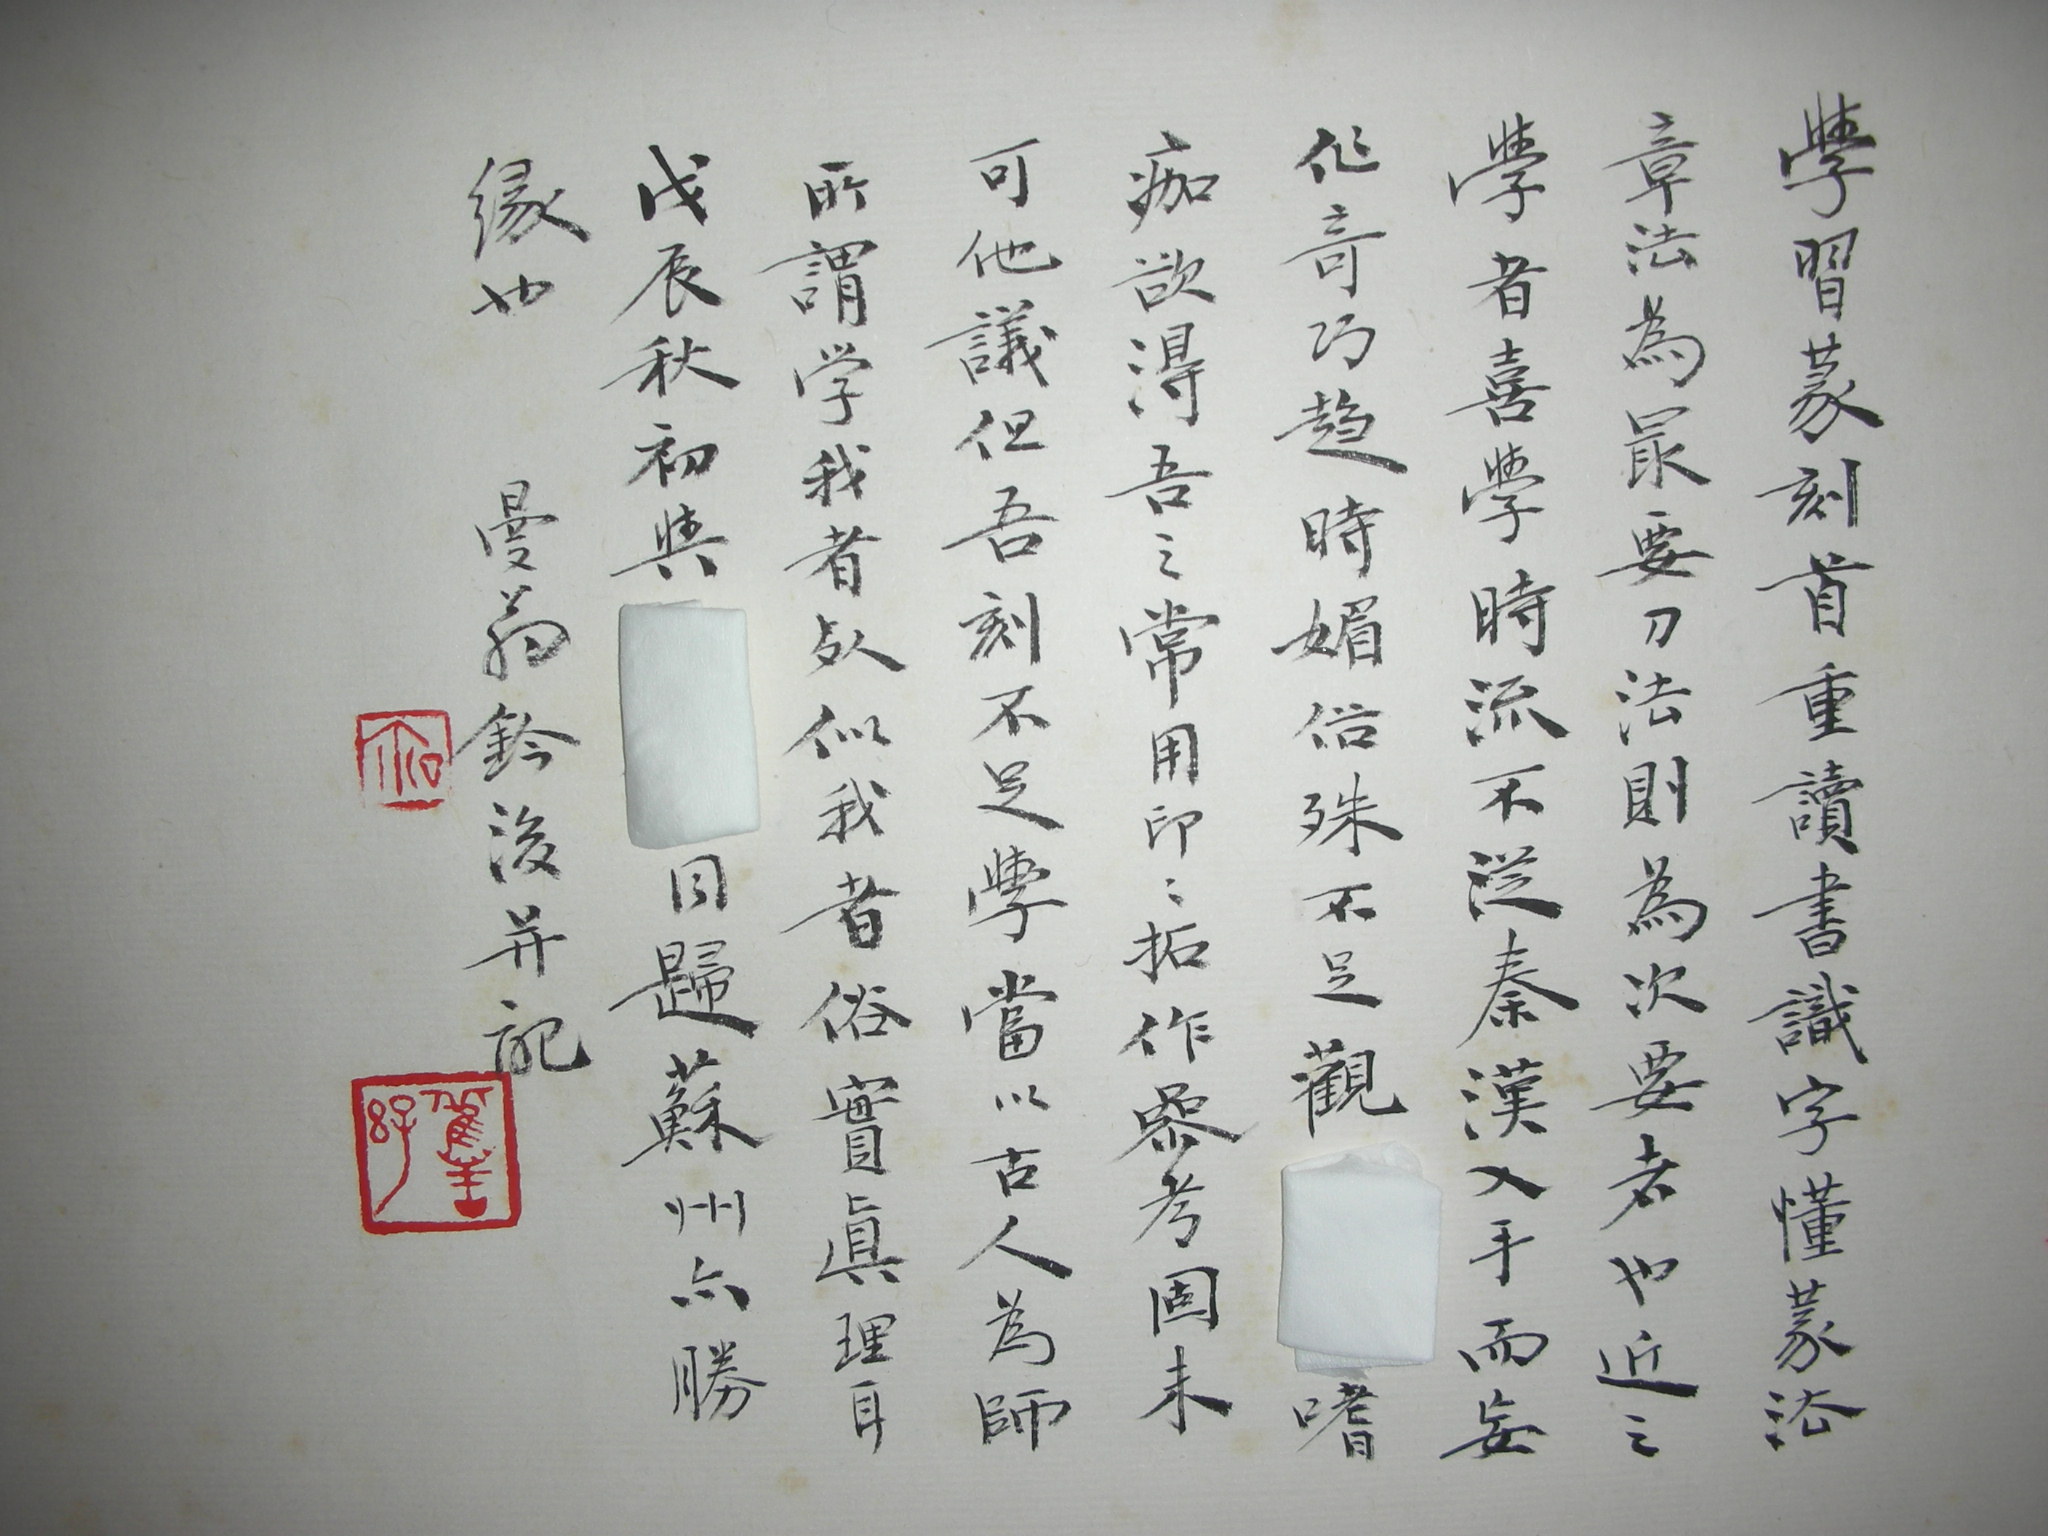 學習篆刻首重讀書識字懂篆法
章法為最要刀法則為次要者也近之
學者喜學時流不從秦漢入手而妄
作奇巧趨時媚俗殊不足觀 嗜
痂欲得吾之常用印之拓作參考固未
可他議但吾刻不足學當以古人為師
所謂学我者 似我者俗實真理耳
戊辰秋初與 同歸蘇州亦勝
緣也 曼翁鈐後并記